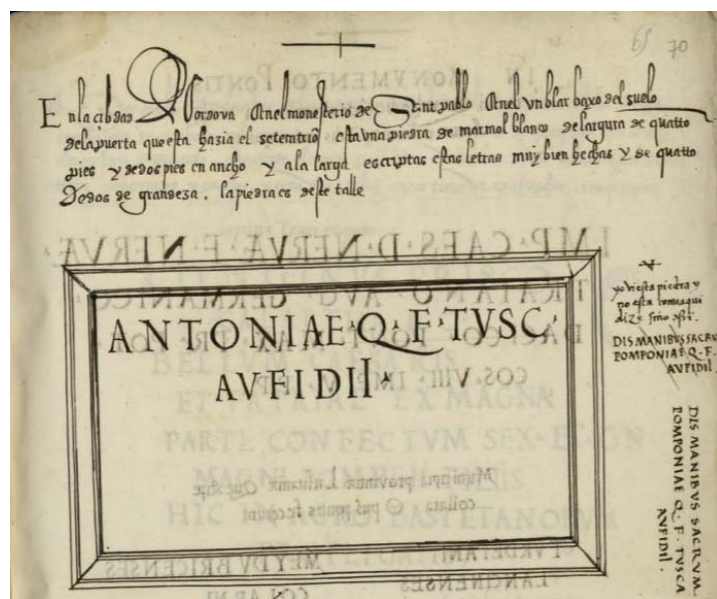 65 70
En la çibdad De Cordova En el monesterio de Sant pablo En el vnblar baxo del suelo
de la puerta que esta hazia el setemtrio esta vna piedra de marmol blanco de largura de quatto
pies y de dos pies en ancho y a la larga escriptas estas letras muy bien hechas y de quatto
Dedos de grandeza . la piedra es deste talle
ANTONIAE·Q·F·TVSC·
AVFIDII
yo vi esta piedra y
no esta como aqui
dize sino asi.
DIS MANIBVS SACRV
POMPONIAE Q·F·
AVFIDII
DIS MANIBVS SACRVM.
POMPONIAE Q·F·TVSCA
AVFIDII.